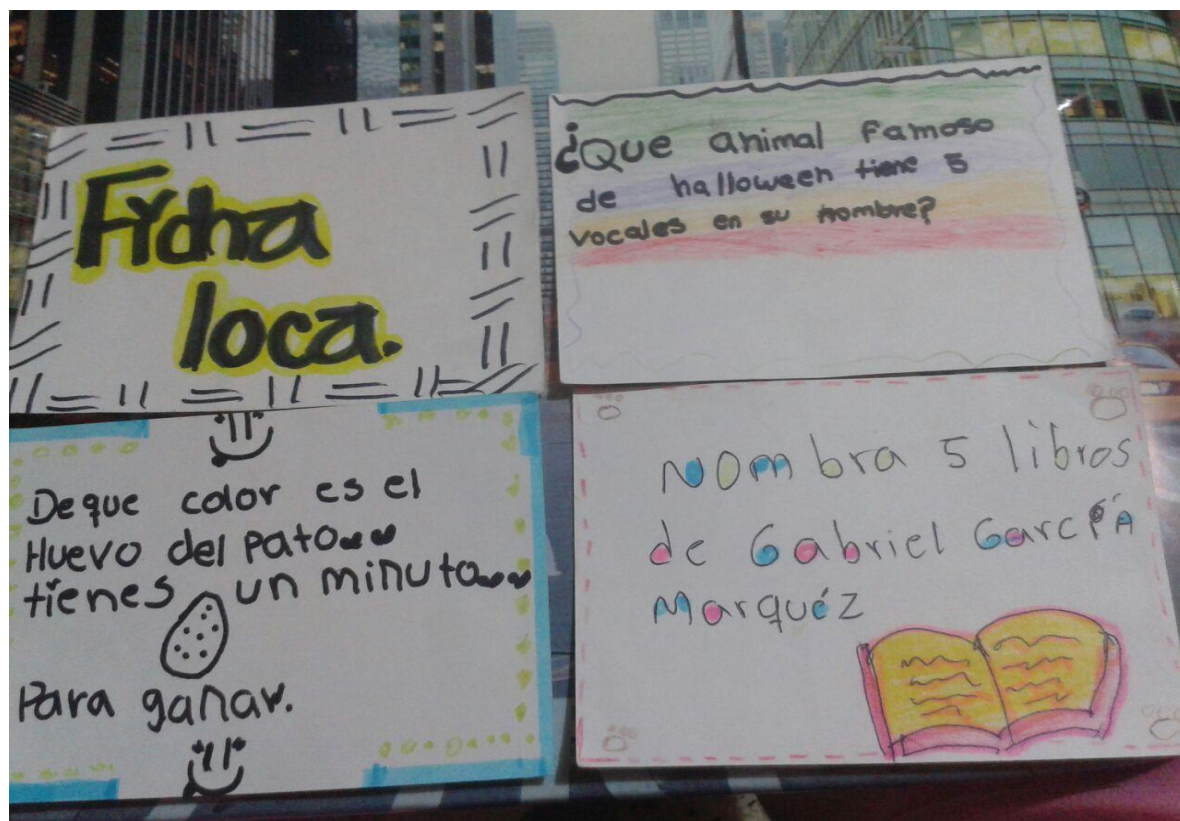 Ficha
loca.
¿Que animal famoso
de halloween tiene 5
vocales en su nombre?
De que color es el
Huevo del pato...
tienes un minuto...
Para ganar.
Nombra 5 libros
de Gabriel GarcíA
Marquéz